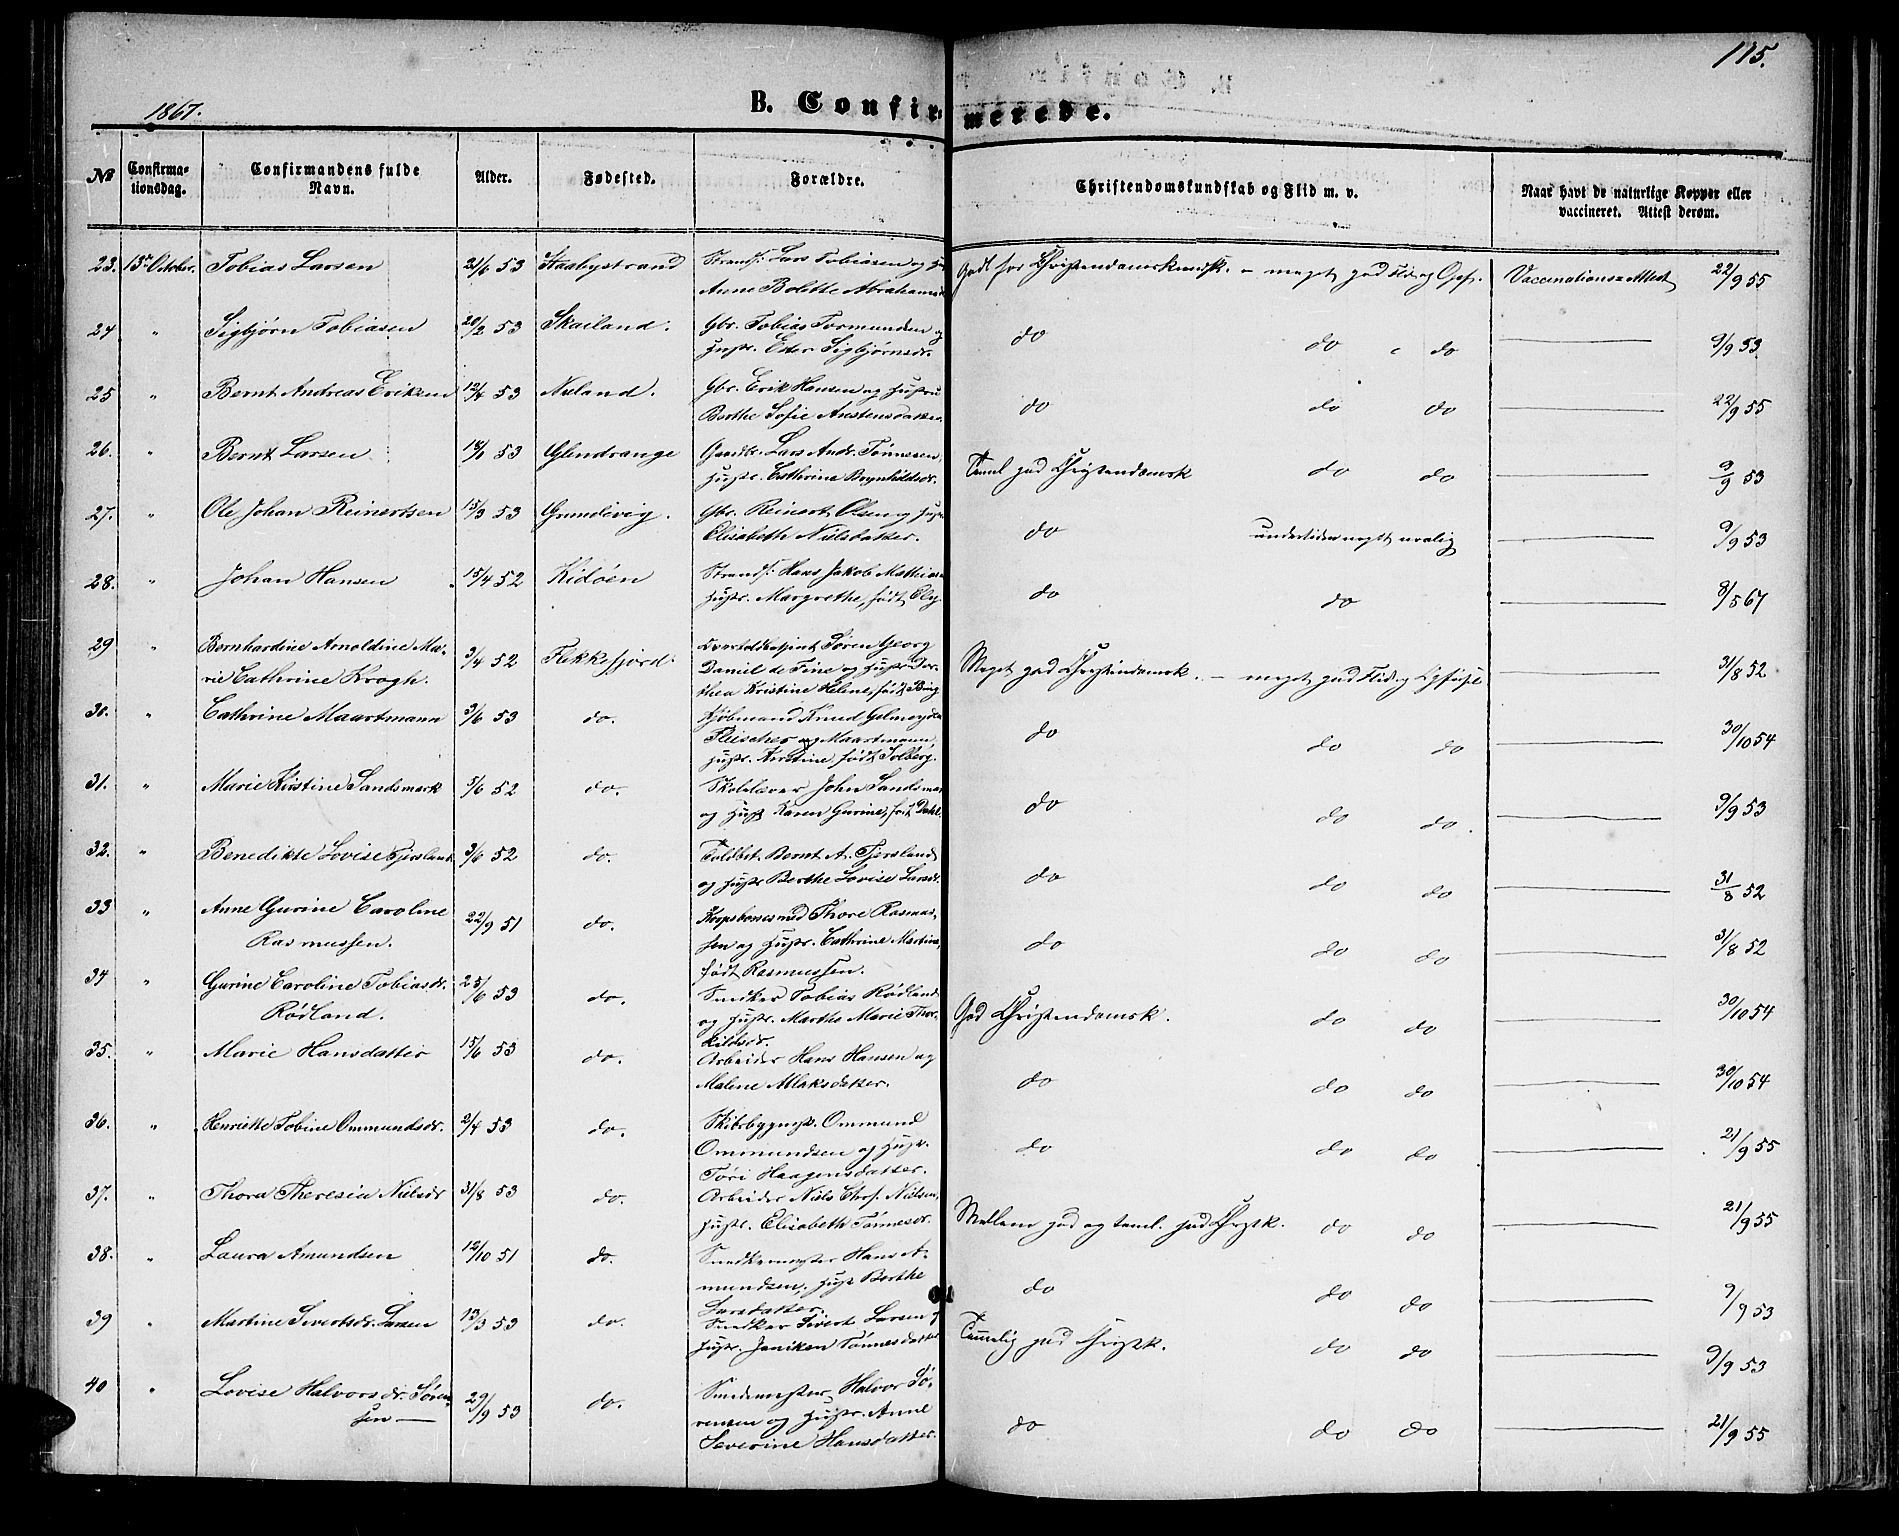 115.
1867.
B. Confirmerede.
No Confirmationsdag. Confirmandens fulde Navn. Alder. Fødested. Forældre. Christendomskundskab og Flid m. v. Naar havt de naturlige Kopper eller vaccineret. Attest derom.
23. 13de Octobr. Tobias Larsen 21/6 53 Staabystrand Strands: Lars Tobiasen og
Anne Bolette Abrahams Godt for Christendomskundsk. - meget god Flid og Opf. Vaccinations Attest 22/9 55
24 " Sigbjørn Tobiasen 20/2 53 Skailand. Gbr. Tobias Tormunden og
Hustr. Ester Sigbjørnsdr. do do do 9/9 53
25 " Bernt Andreas Eriksen 12/4 53 Nuland. Gbr. Erik Hansen og Hustru
Berthe Sofie Anstensdatter do do do 22/9 55
26. " Bernt Larsen 18/1 53 Glendrange Gaardbr. Lars Andr. Tønnesen,
Hustr. Cathrine Brynhildsdr. Teml god Christendomsk do do 9/9 53
27. " Ole Johan Reinertsen 15/3 53 Grundevig. Gbr. Reinert Olsen og Hustr
Elisabeth Nielsdatter. do undertiden noget urolig 9/9 53
28. " Johan Hansen 15/4 52 Kidøen Strands: Hans Jakob Mathias
Hustr. Margrethe, født Oly. do do 8/5 67
29 " Bernhardine Arnoldine Ma-
rie Cathrine Krogh. 3/4 52 Flekkefjord. Søren Georg
Daniel de Fine og Hustr Dor-
thea Kristine Helene, født Bing Meget god Christendomsk. - meget god Flid og Opførsel 31/8 52
30. " Cathrine Maartmann 3/6 53 do. Kjøbmand Knud Gelmeyden
Fleischer og Maartmann,
Hustr. Kirstine født Solberg. do do do 30/10 54
31. " Marie Kirstine Sandsmark 5/6 52 do. Skolelærer John Sandsmar
og Hustr Karen Gurine, født Dahl. do do do. 9/9 53
32. " Benedikte Lovise Tjersland 3/6 52 do. Toldbet. Bernt A. Tjersland
og Hustr Berthe Lovise Larsdr. do do do 31/8 52
33 " Anne Gurine Caroline
Rasmussen. 22/9 51 do. Thore Rasmus-
sen og Hustr. Cathrine Martine,
født Rasmussen. do do do 31/8 52
34 " Gurine Caroline Tobiasdr.
Rødland. 25/6 53 do. Snedker Tobias Rødland
og Hustr. Marthe Marie Thor-
kildsdr. God Christendomsk. do do 30/10 54
35. " Marie Hansdatter 15/6 53 do. Arbeider Hans Hansen og
Malene Aslaksdatter. do do do 30/10 54
36. " Henriette Tobine Ommundsdr. 2/4 53 do. Skibsbyggmst. Ommund
Ommundsen og Hustr.
Tøri Haagensdatter. do do do 21/9 55
37. " Thora Theresia Nielsdr 31/8 53 do. Arbeider Niels Chrs. Nielsen,
Hustr. Elisabeth Tønnesdr. Mellem god og teml. god Christk. do do 21/9 55
38. " Laura Amundsen 12/10 51 do. Snedkermester Hans A-
mundsen, Hustr Berthe
Larsdatter. do do do 9/9 53
39 " Martine Sivertsdr. Larsen 13/3 53 do. Snedker Sivert Larsen og
Hustr. Janiken Tønnesdatter Temmelig god Christk. do do 9/9 53
40 " Lovise Halvorsdr. Søren-
sen — 29/9 53 do. Smedemester Halvor Sø-
rensen og Hustr. Anne
Severine Hansdatter. do do do 21/9 55